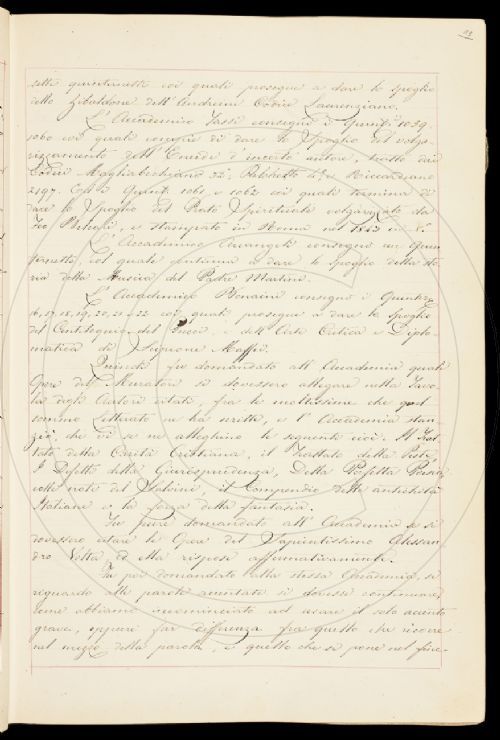 sette quinternetti coi quali prosegue a dare lo Spoglio
dello Zibaldone dell'Andreini Codice Laurenziano.
L'Accademico Tassi consegnò i Quint.i 1059.
1060 coi quali di dare lo Spoglio del volga-
rizzamento dell'Eneide d'incerto autore, tratto dai
Codici Magliabechiano 32. Palchetto e Riccardiano
2197. Così i Quint. 1061 e 1062 coi quali termina di
dare lo Spoglio del Prato Spirituale volgarizzato da
Feo Belcari, e stampato in Roma nel 1843 in 8.o
L'Accademico Arcangeli consegnò un Quin-
ternetto, col quale continua a dare lo spoglio della sto-
ria della Musica del Padre Martini.
L'Accademico Bonaini consegnò i Quintern.
16, 17, 18, 19, 20, 21 e 22 coi quali prosegue a dare lo Spoglio
del Centiloquio del Pucci, e dell'Arte Critica e Diplo-
matica di Scipione Maffei.
Quindi fu domandato all'Accademia quali
Opere del Muratori si dovessero allegare nella Tavo-
la degli Autori citati, fra le moltissime che quel
sommo Letterato ne ha scritte, e l'Accademia stan-
ziò, che vi se ne alleghino le seguenti cioè. Il Trat-
tato della Carità Cristiana, il Trattato della Peste,
I Difetti della Giurisprudenza, Della Perfetta Poesia,
colle note del Salvini, il Compendio delle antichità
Italiane e la forza della fantasia.
Fu pure domandato all'Accademia se si
dovessero citare le Opere del Sapientissimo Alessan-
dro Volta, ed ella rispose affermativamente.
Fu poi domandato alla stessa Accademia, se
riguardo alle parole accentate si dovesse continuare,
come abbiamo incominciato ad usare il solo accento
grave, oppure far differenza fra quello che ricorre
nel mezzo della parola, e quello che si pone nel fine.